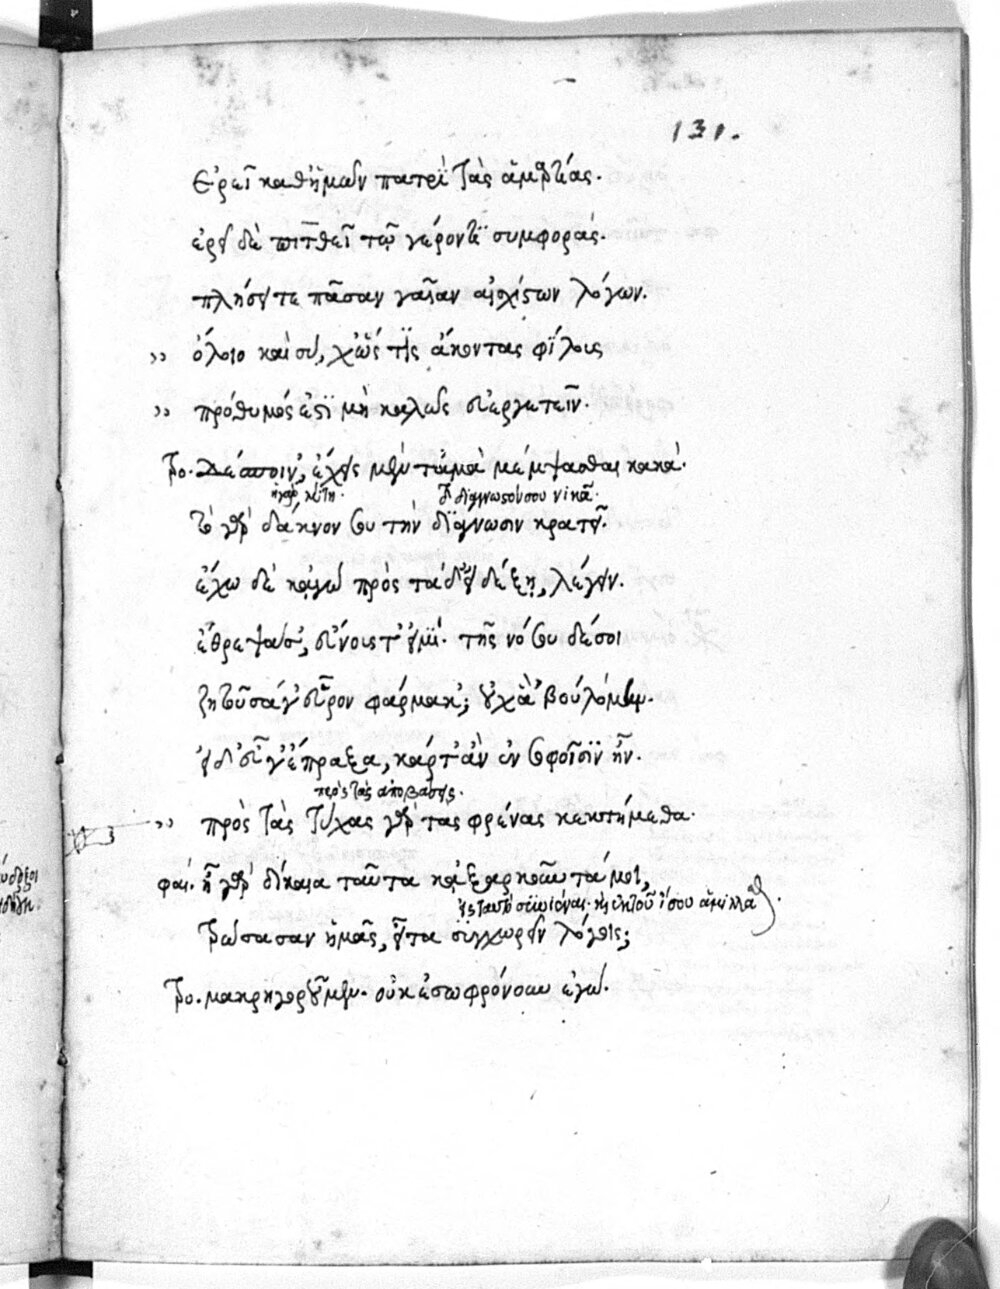 131.
ἐρεῖ καθ' ἡμῶν πατρὶ τὰς ἁμαρτίας.
ἐρεῖ δὲ πιτθεῖ τῷ γέροντι συμφοράς.
πλήσει τε πᾶσαν γαῖαν αἰσχίστων λόγων.
ὄλοιο καὶ σὺ, χὥς τις ἄκοντας φίλους
πρόθυμός ἐστι μὴ καλῶς εὐεργετεῖν.
Τρο. Δέσποιν', ἔχεις μὲν τἀμὰ μέμψασθαι κακά.
διαγνώσεώς σου νικᾷ.
τὸ γὰρ δάκνον σου τὴν διάγνωσιν κρατεῖ.
ἔχω δὲ κἀγὼ πρὸς τάδ' εἰ δέξῃ, λέγειν.
ἔθρεψά σ', εὔνους τ' εἰμί. τῆς νόσου δέ σοι
ζητοῦσά γ' εὗρον φάρμακ'; οὐχ ἃ 'βουλόμην.
εἰ δ' εὖ γ' ἔπραξα, κάρτ' ἂν ἐν σοφοῖσιν ἦν.
πρὸς τὰς ἀποβάσεις.
πρὸς τὰς τύχας γὰρ τὰς φρένας κεκτήμεθα.
φαί. ἦ γὰρ δίκαια ταῦτα κἀξαρκοῦντά μοι,
τρώσασαν ἡμᾶς, εἶτα συγχωρεῖν λόγοις;
Τρο. μακρηγοροῦμεν. οὐκ ἐσωφρόνουν ἐγώ.